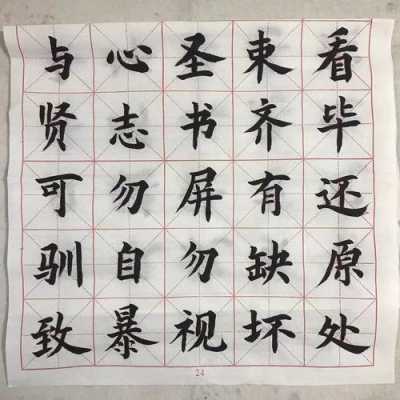 看毕还原处
束齐有缺坏
圣书屏勿视
心志勿自暴
与贤可驯致
24